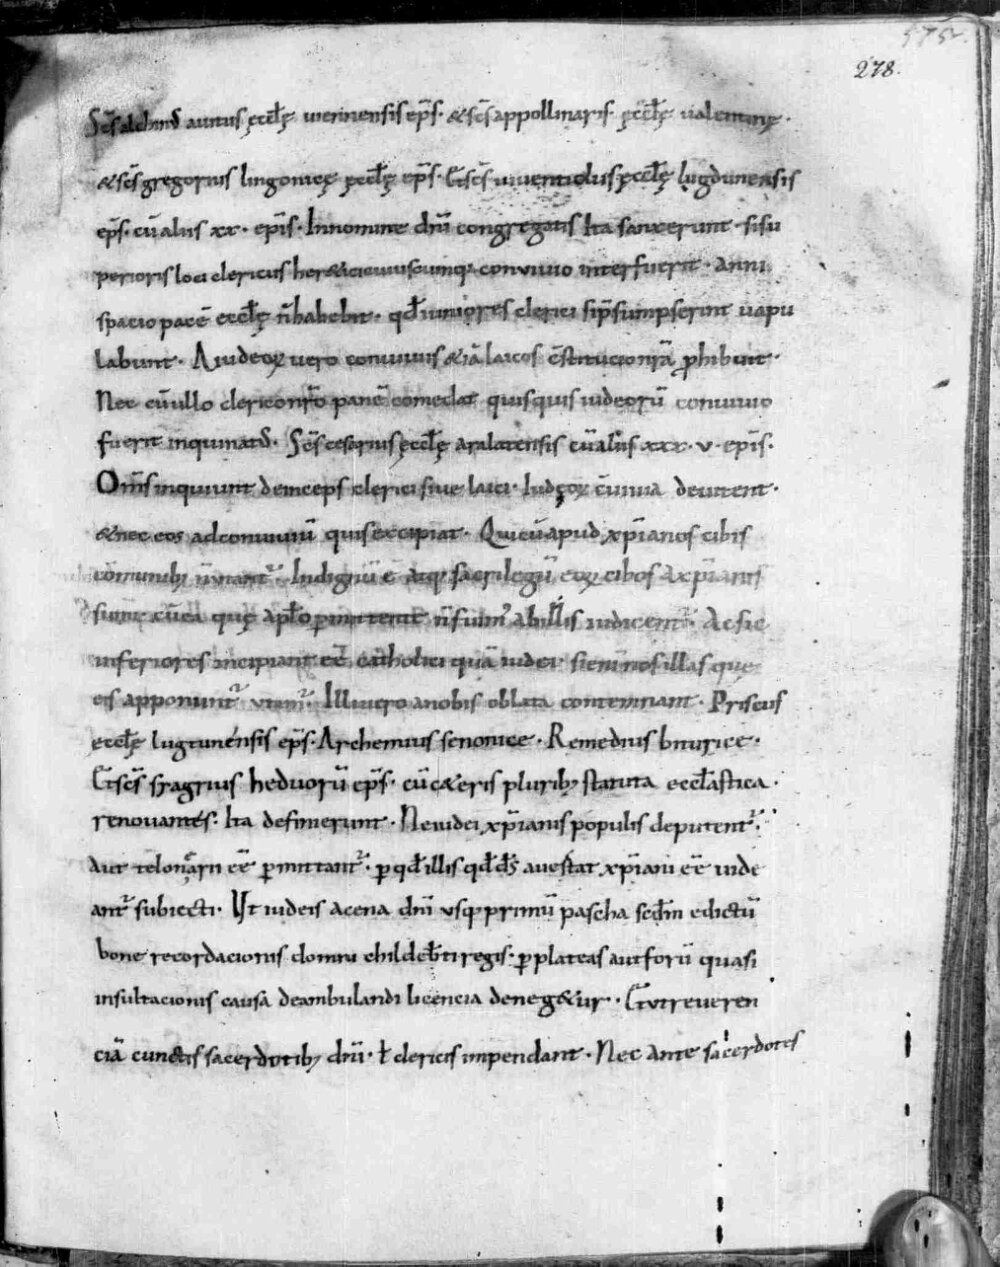 278.
Sc̄s alchimꝰ auitus ęccl̄ę uiennensis ep̄s. & sc̄s appollinaris. ęccl̄ę ualentinę.
& sc̄s gregorius lingonicę ęccl̄ę ep̄s. Et sc̄s uiuentiolus ęccl̄ę lugdunensis
ep̄s. cū aliis xx. ep̄is. Innomine dn̄i congregatis Ita sanxerunt. si su
perioris loci clericus her&ici cuiuscunq; conuiuio interfuerit. anni
spacio pacē eccl̄ę n̄ habebit. qd̄ iuniores clerici si p̄sumpserint uapu
labunt. A iudeoꝝ uero conuiuiis & iā laicos c̄stitucio nr̄a ꝓhibuit.
Nec cū ullo clerico nr̄o panē comedat quisquis iudeorū conuiuio
fuerit inquinatꝰ. Sc̄s cesarius ęccl̄ę aralatensis cū aliis xxx.v. ep̄is.
Om̄s inquiunt deinceps clerici siue laici. Iudęoꝝ c̄uiuia deuitent.
& nec eos ad conuiuiū quis excipiat. Qui cū apud xp̄ianos cibis
comunibꝫ n̄ utantᷣ. Indignū ē atq; sacrilegū eoꝝ cibos a xp̄ianis
sumi cū ea quę apl̄o ꝑmittente n̄ sumimꝰ ab illis iudicentᷣ. Ac sic
inferiores incipiant eē catholici quā iudei. si enim nos illas quę
eis apponuntᷣ utimᷣ. Illi uero a nobis oblata contemnant. Priscus
eccl̄ę lugtunensis ep̄s. Archemius senonice. Remedius biturice.
Et sc̄s sragrius heduorū ep̄s. cū c&eris pluribꝫ statuta eccl̄astica.
renouantes. Ita definierunt. Ne iudei xp̄ianis populis deputentᷣ.
aut telonarii eē ꝑmittantᷣ. ꝑ qd̄ illis qd̄ d̄s auestat xp̄iani eē uide
antᷣ subiecti. Ut iudeis a cena dn̄i usq; primū pascha scd̄m edictū
bone recordacionis domni childeb̄ti regis. ꝑ plateas aut forū quasi
insultacionis causa deambulandi licencia deneg&ur. Et ut reueren
ciā cunctis sacerdotibꝫ dn̄i. ł clericis impendant. Nec ante sacerdotes